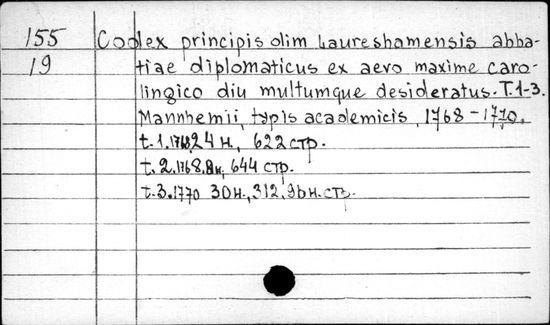 155 Codex principis olim Laureshamensis abba-
19 tiae diplomaticus ex aevo maxime caro-
lingico diu multumque desideratus. T.1-3.
Mannhemii, typis academicis, 1768-1770.
t.1.1768, 24 н, 622 стр.
t.2.1768. 8н, 644 стр.
t.3.1770 30н., 312, 96н. стр.